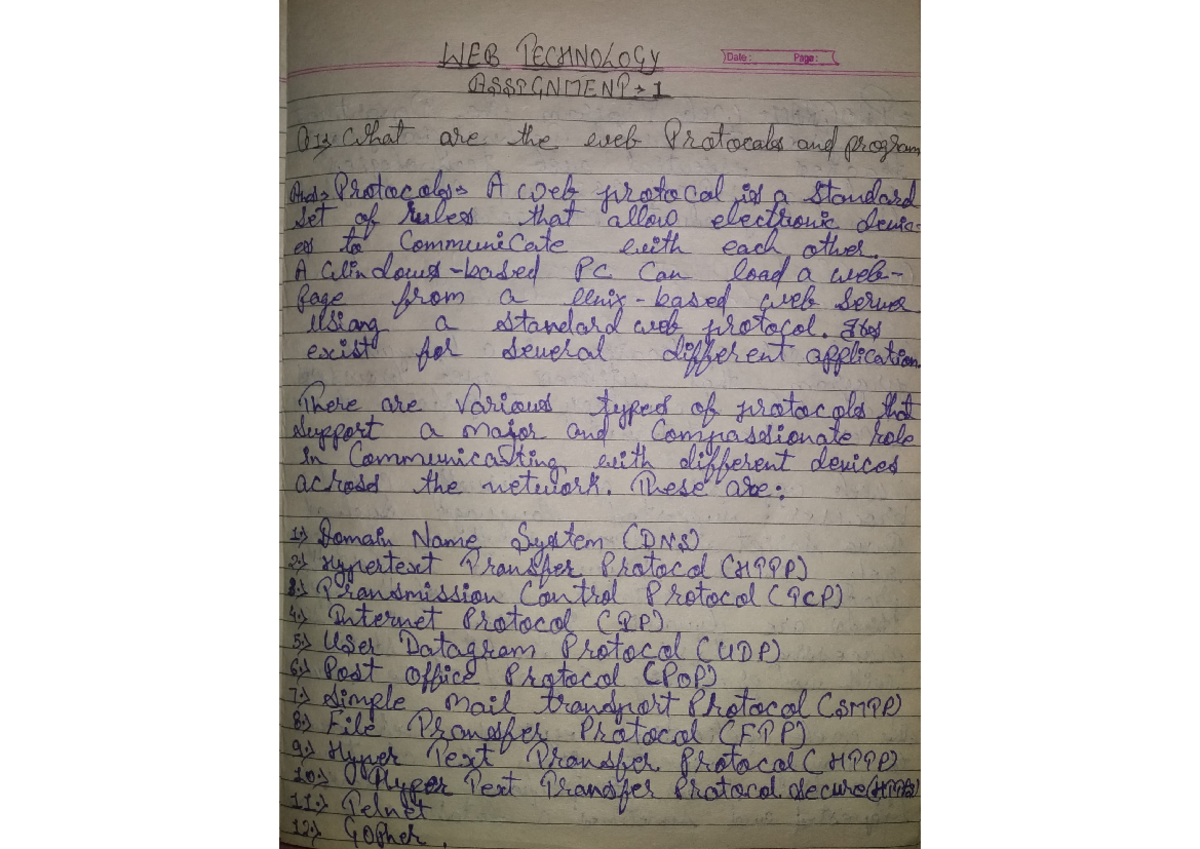 WEB TECHNOLOGY
Date: Page:
ASSIGNMENT → 1
Q1) What are the web Protocols and program
Ans → Protocols → A web protocol is a standard
set of rules that allow electronic devic-
es to communicate with each other.
A Windows-based PC can load a web-
page from a Unix-based web server
Usiang a standard web protocol.
exist for several different application.
There are various types of protocols that
support a major and compassionate role
in communicasting with different devices
across the network. These are:
1.) Domain Name System (DNS)
2.) Hypertext Transfer Protocol (HTTP)
3.) Transmission Control Protocol (TCP)
4.) Internet Protocol (IP)
5.) User Datagram Protocol (UDP)
6.) Post office Protocol (POP)
7.) Simple mail transport Protocol (SMTP)
8.) File Transfer Protocol (FTP)
9.) Hyper Text Transfer Protocol (HTTP)
10.) Hyper Text Transfer Protocol secure (HTTPS)
11.) Telnet
12.) Gopher.